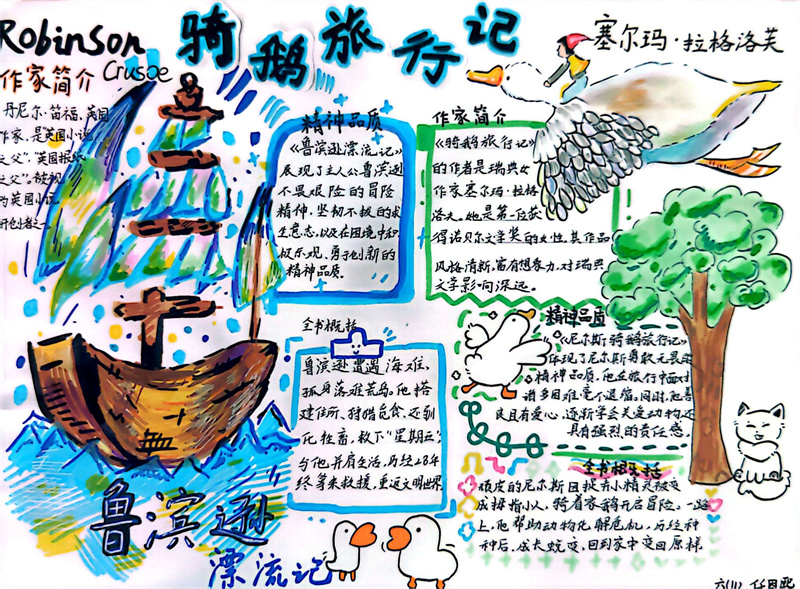 Robinson
Crusoe
骑鹅旅行记
塞尔玛·拉格洛芙
作家简介
丹尼尔·笛福,英国
作家,是英国小说
之父"英国报纸
之父",被视
为英国小说
开创者之一
精神品质
《鲁滨逊漂流记》
展现了主人公鲁滨逊
不畏艰险的冒险
精神,坚韧不拔的求
生意志,以及在困境中积
极乐观,勇于创新的
精神品质.
作家简介
《骑鹅旅行记》
的作者是瑞典女
作家塞尔玛·拉格
洛夫.她是第一位获
得诺贝尔文学奖的女性,其作品
风格清新,富有想象力,对瑞典
文学影响深远。
全书概括
鲁滨逊遭遇海难,
孤身落难荒岛。他搭
建住所、狩猎觅食、还驯
化牲畜,救下"星期五",
与他并肩生活,历经28年
终等来救援,重返文明世界.
精神品质
《尼尔斯骑鹅旅行记》
体现了尼尔斯勇敢无畏的
精神品质,他在旅行中面对
诸多困难毫不退缩,同时,他善
良且有爱心,逐渐学会关爱动物还
具有强烈的责任感。
全书概括
顽皮的尼尔斯因捉弄小精灵被变
成拇指小人,骑着家鹅开启冒险.一路
上,他帮助动物化解危机,历经种
种后,成长蜕变,回到家中变回原样.
鲁滨逊
漂流记